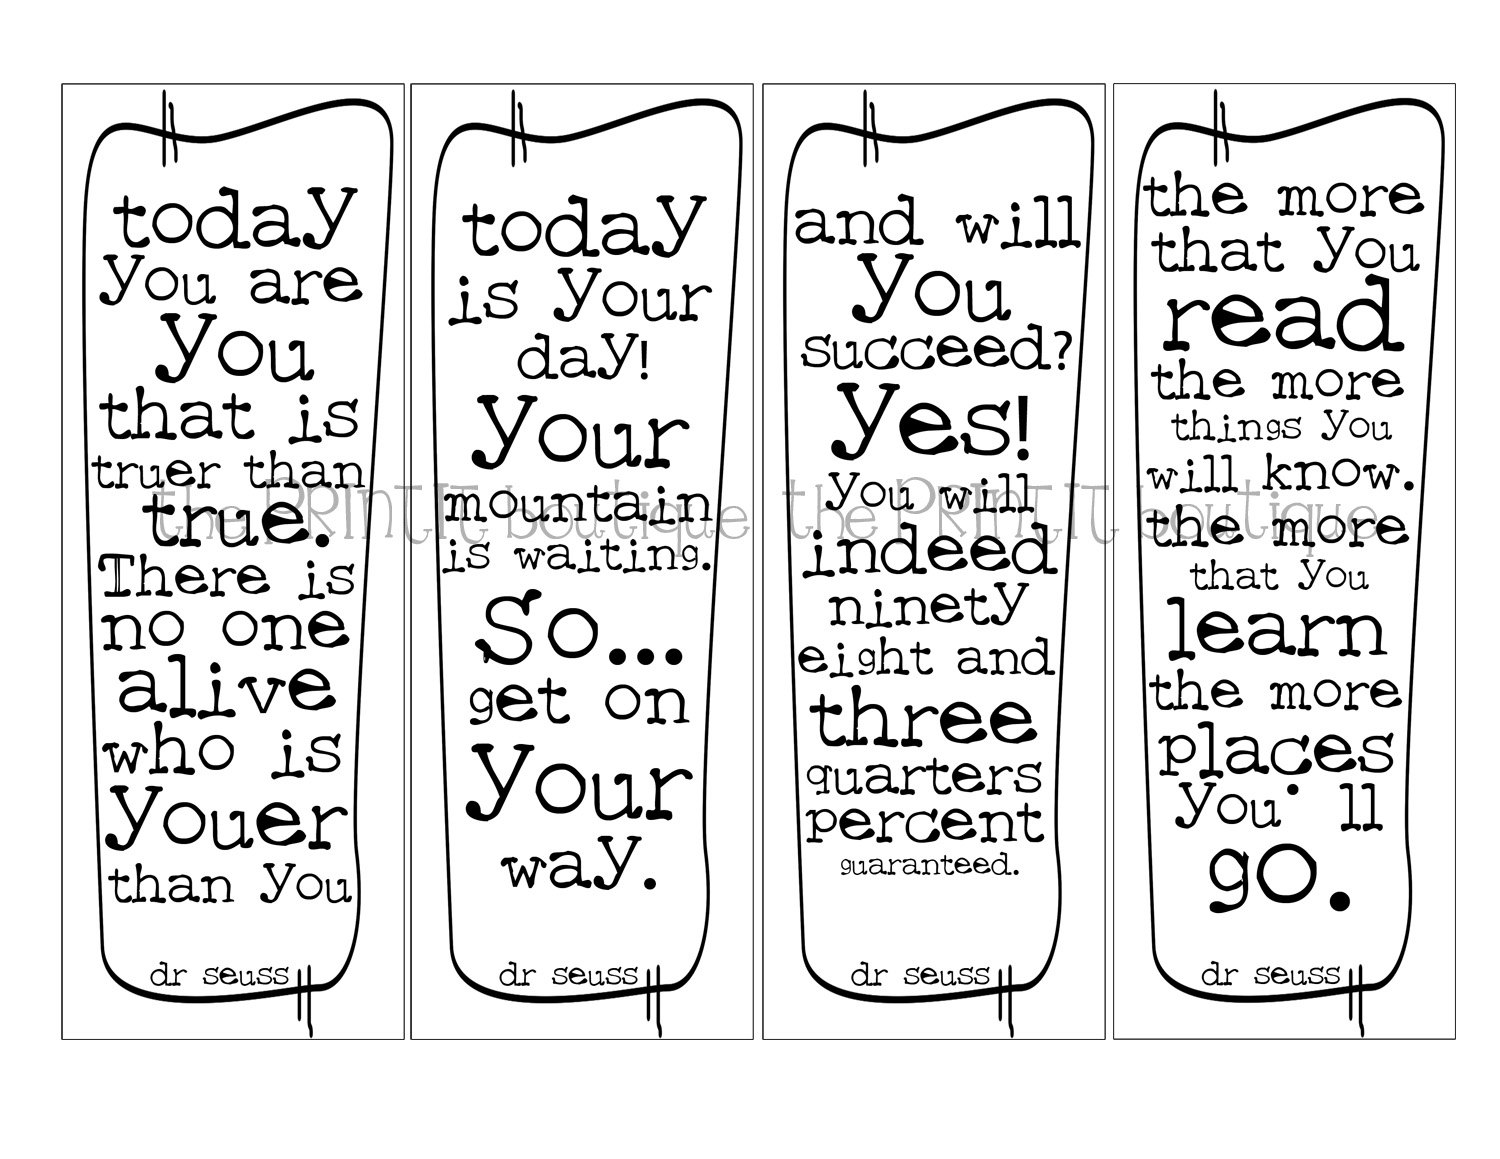 today
you are
you
that is
truer than
true.
There is
no one
alive
who is
youer
than you
dr seuss
today
is your
day!
your
mountain
is waiting.
So...
get on
your
way.
dr seuss
and will
you
succeed?
yes!
you will
indeed
ninety
eight and
three
quarters
percent
guaranteed.
dr seuss
the more
that you
read
the more
things you
will know.
the more
that you
learn
the more
places
you'll
go.
dr seuss
the PRINT IT boutique
the PRINT IT boutique